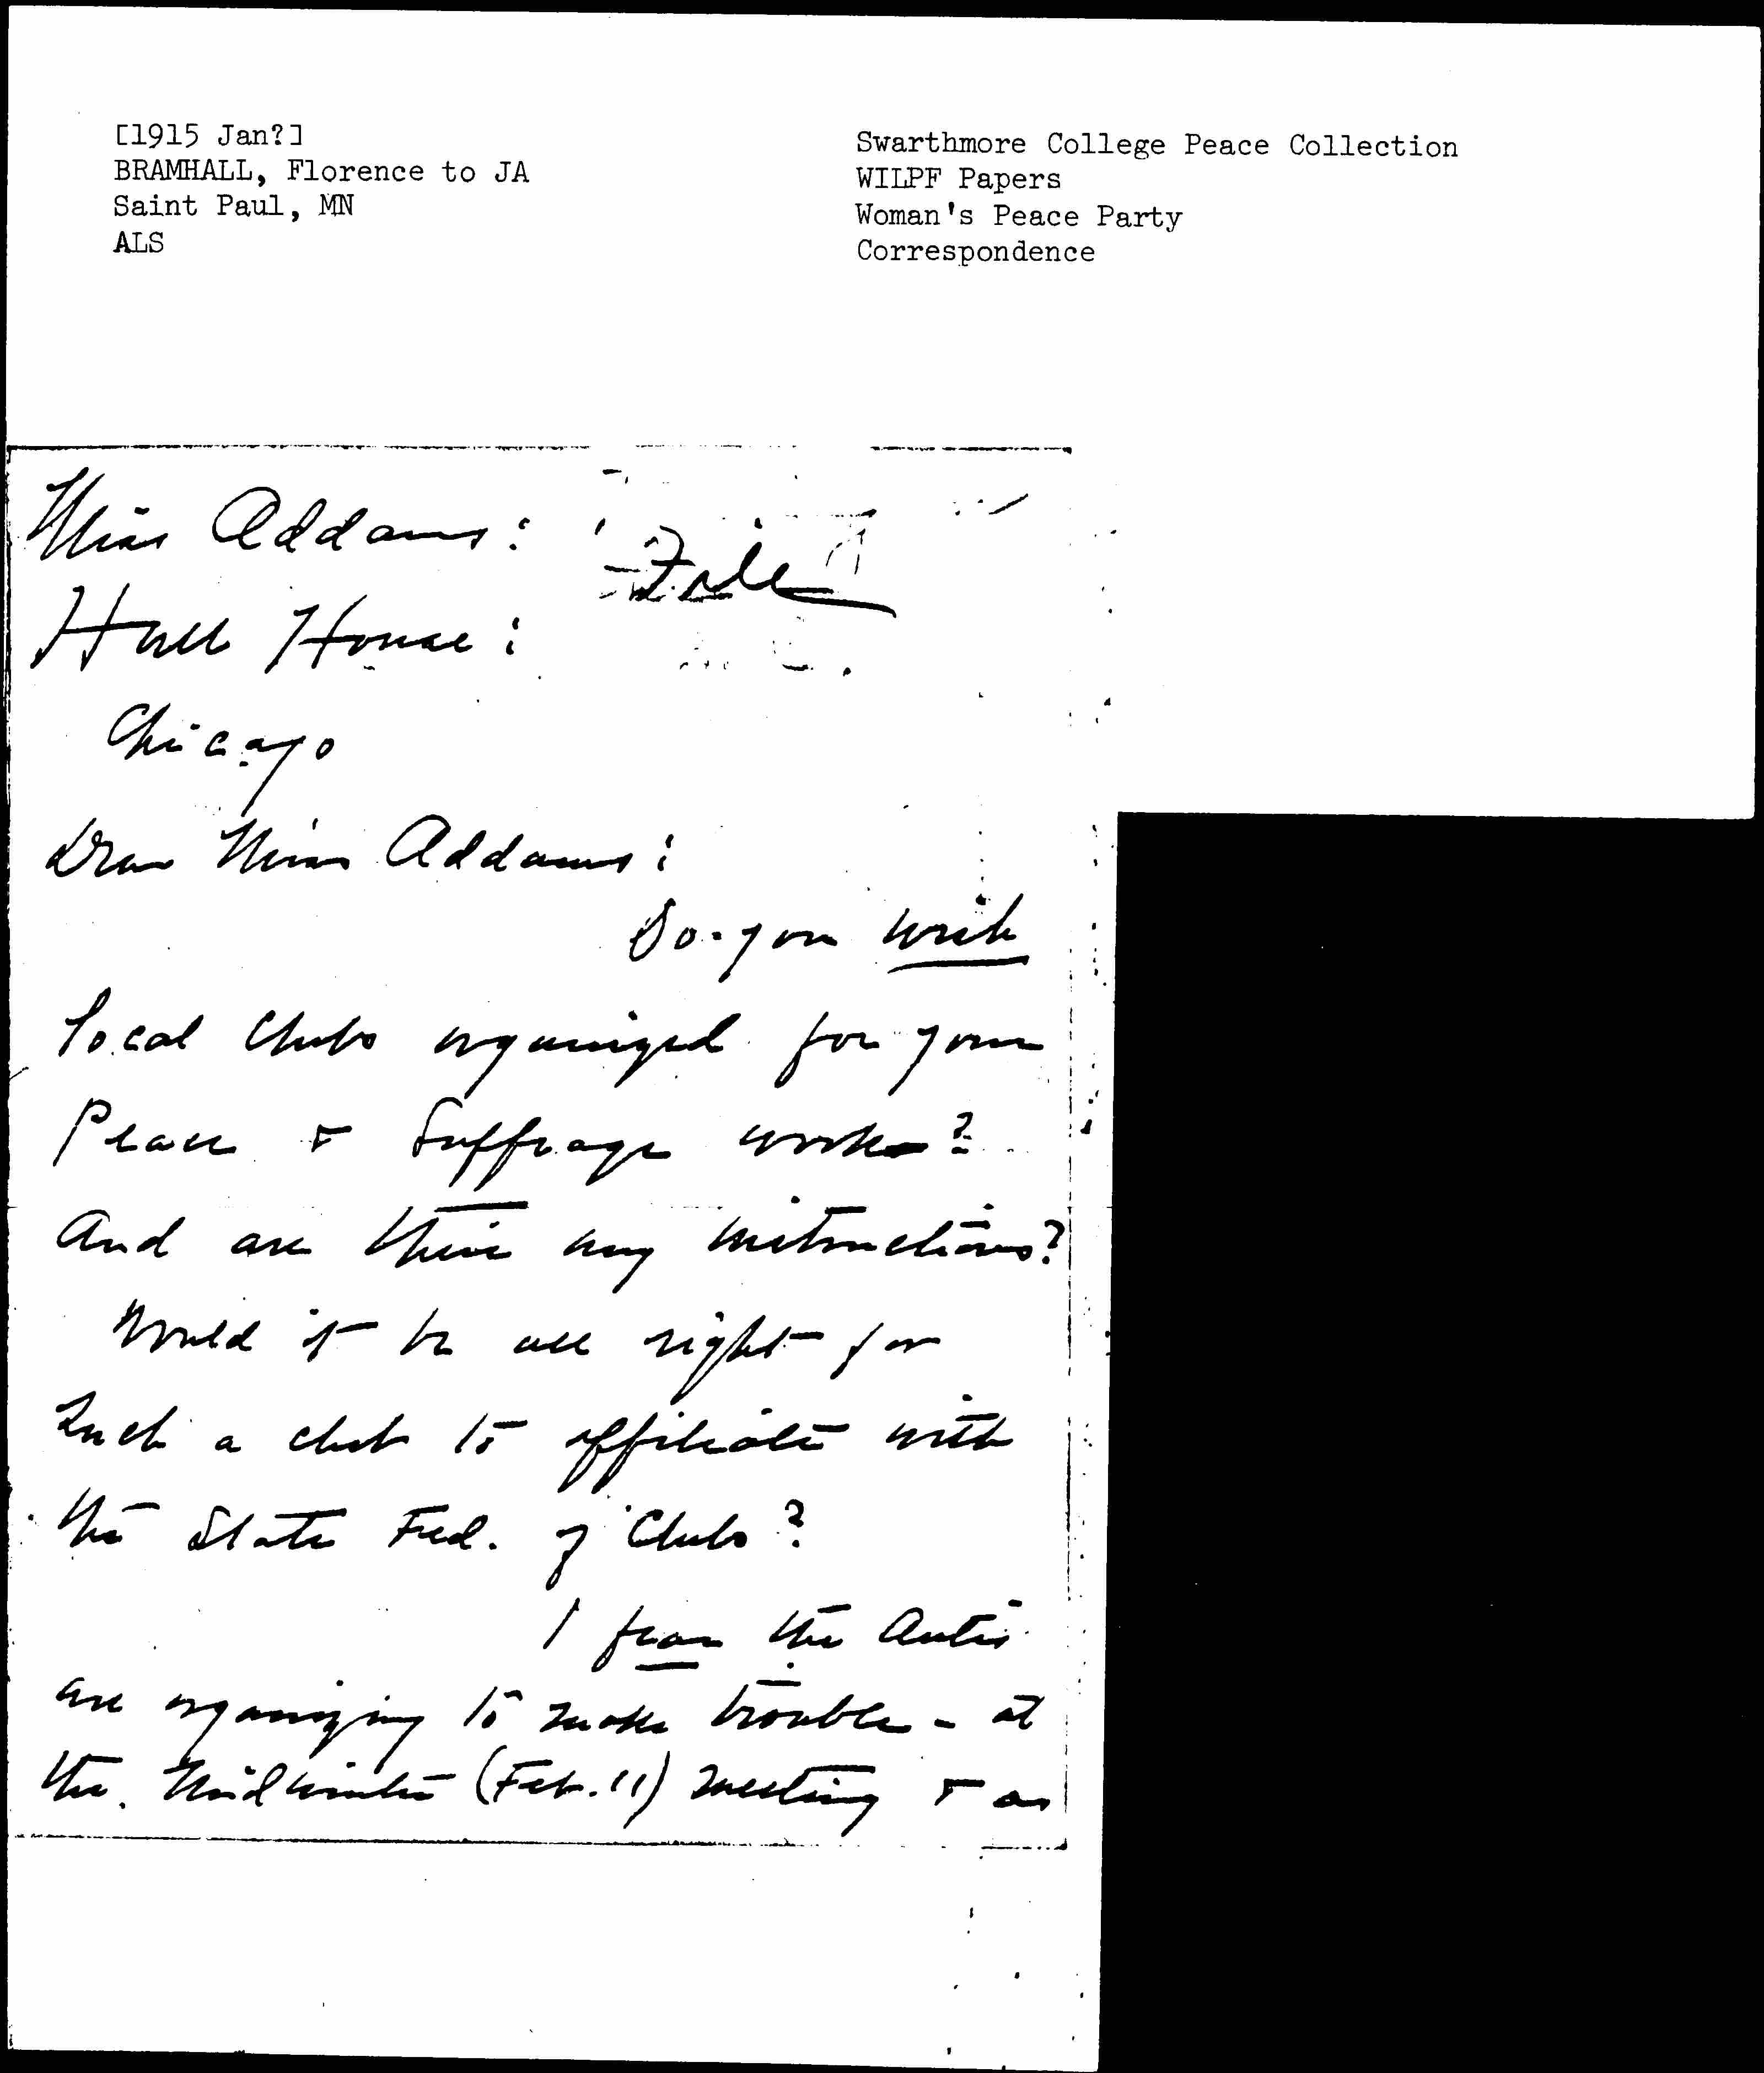 [1915 Jan?]
BRAMHALL, Florence to JA
Saint Paul, MN
ALS
Swarthmore College Peace Collection
WILPF Papers
Woman's Peace Party
Correspondence
Miss Addams:
File
Hull House:
Chicago
Dear Miss Addams:
Do you wish
local Clubs organized for your
Peace & Suffrage work?
And are there any instructions?
Would it be all right for
such a club to affiliate with
the State Fed. of Clubs?
I fear the Antis
are organizing to make trouble - at
the Midwinter (Feb. 11) meeting & as